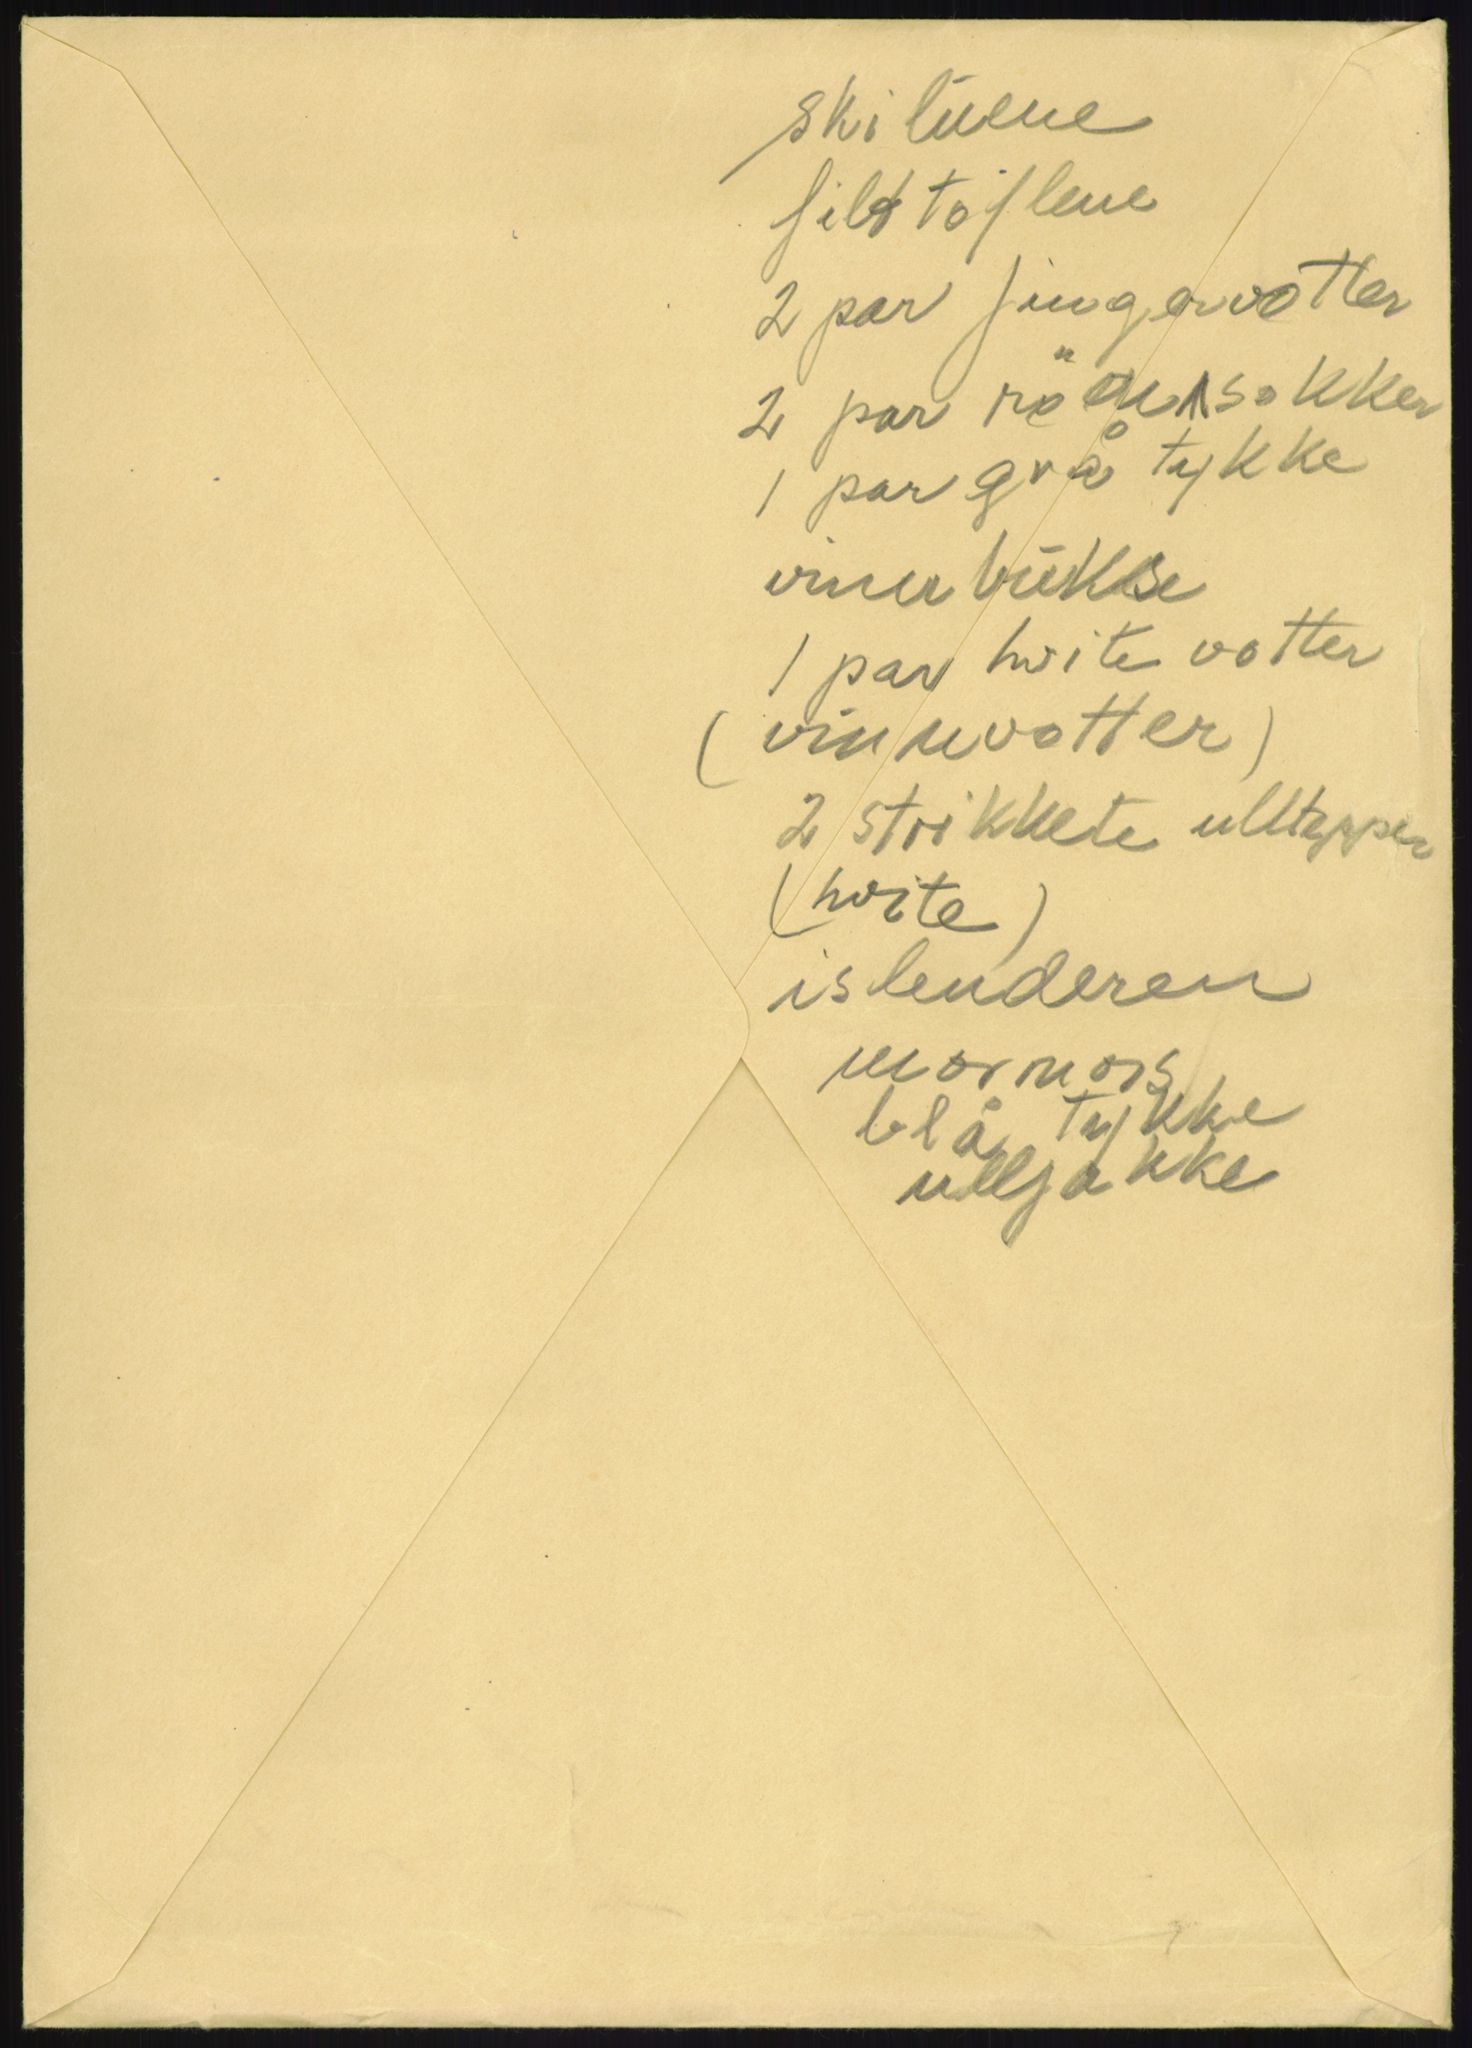 skilūene
filttöflene
2 par fingervotter
2 par röde sokker
1 par grå tykke
būkse
1 par hvite votter
(vinnvotter)
2 strikkete ulltepper
(hvite)
islenderen
mormors
blå tykke
ulljakke